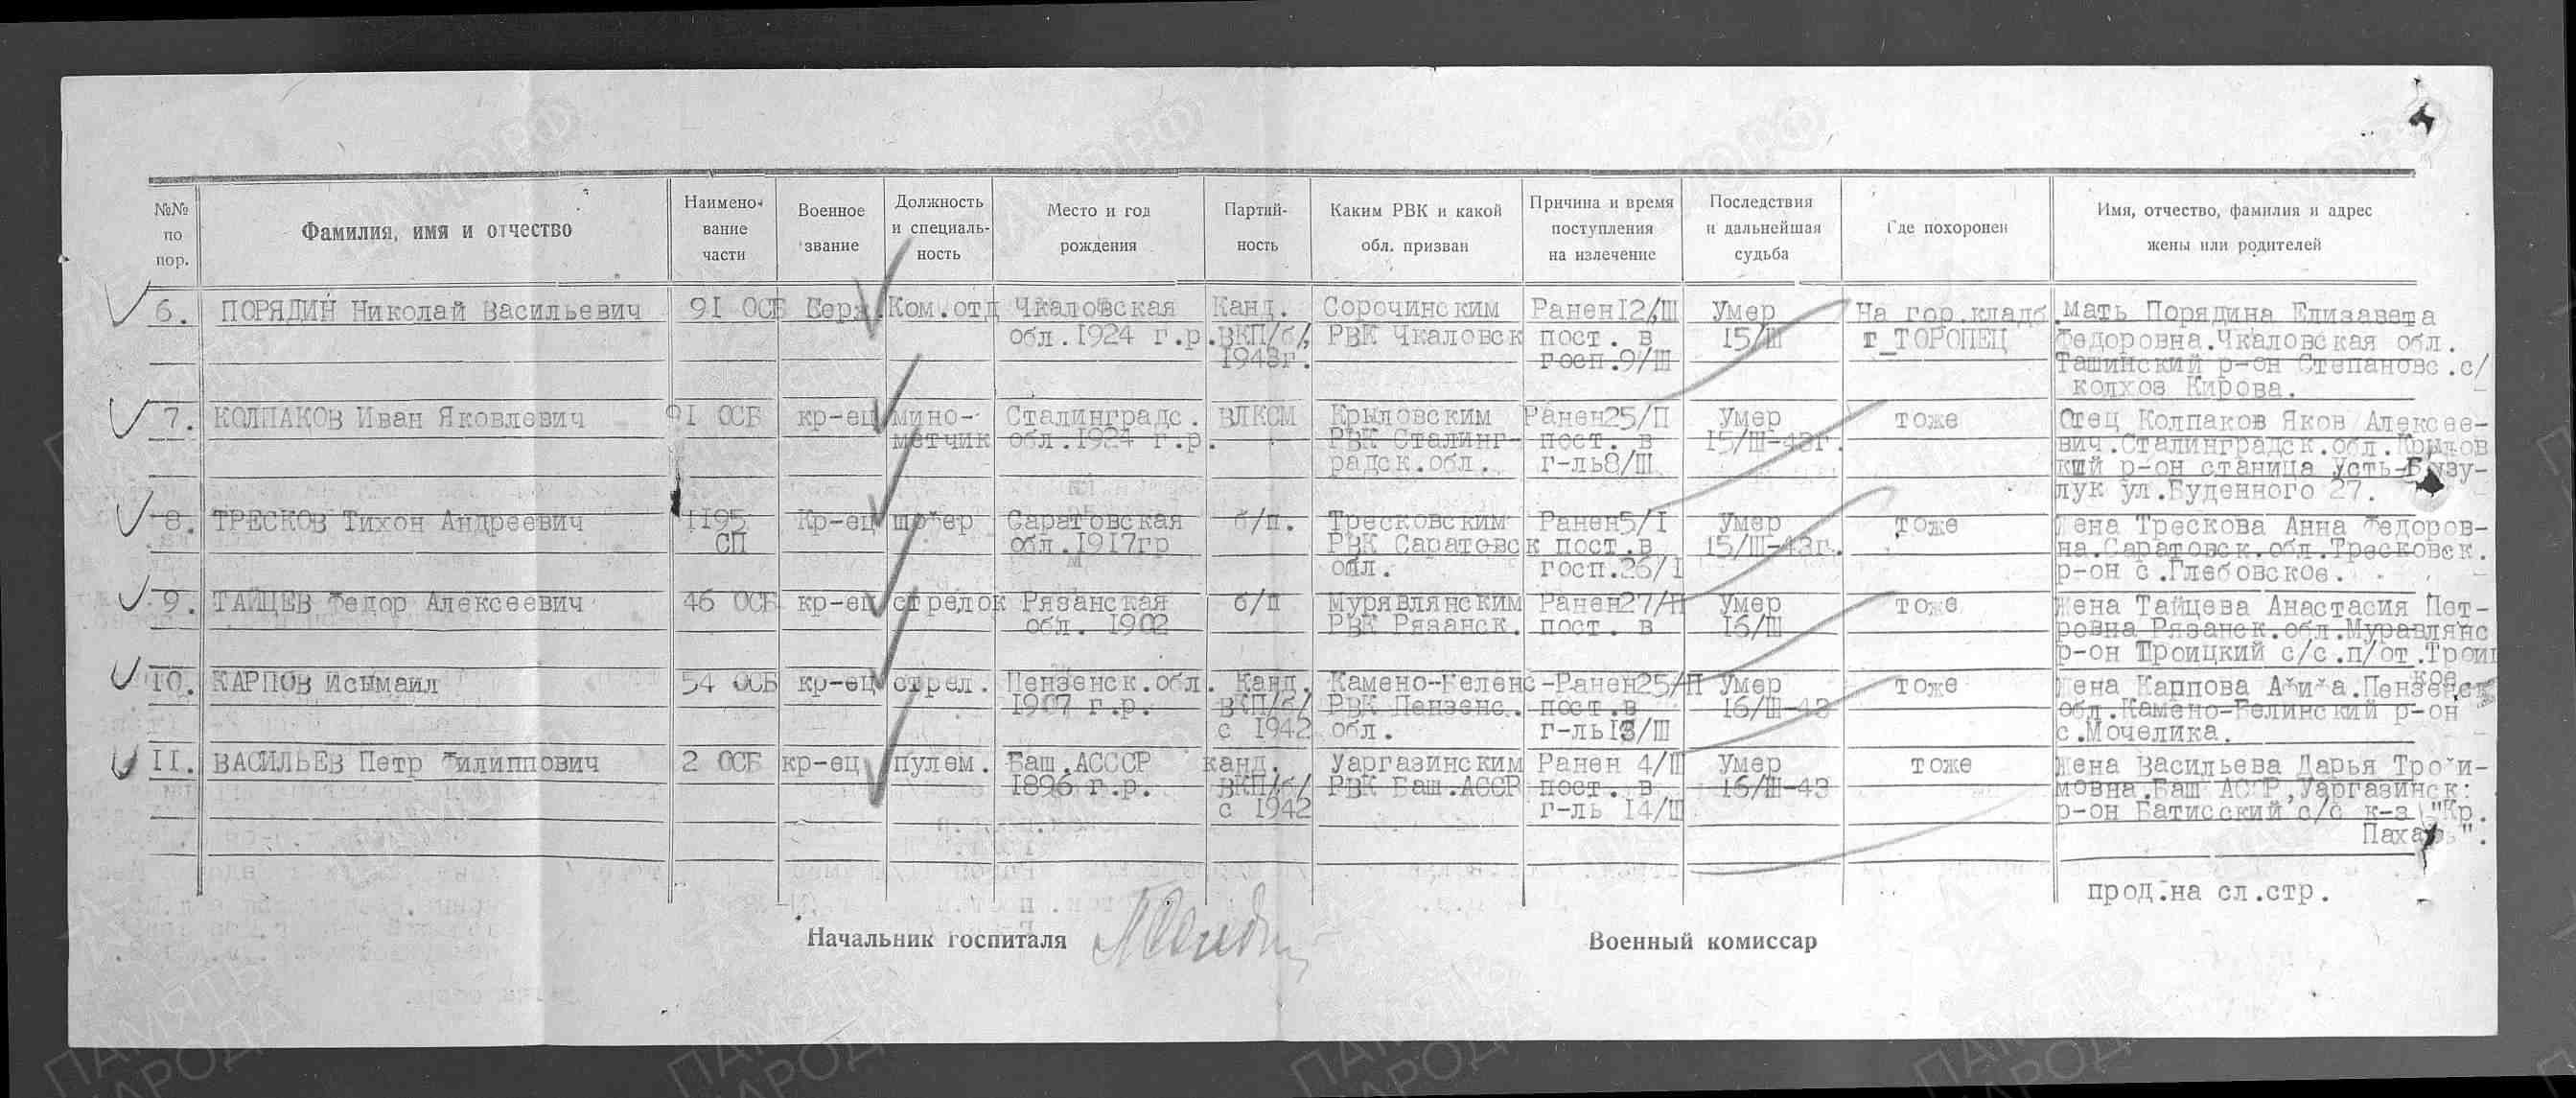 №№ по пор.
Фамилия, имя и отчество
Наимено- вание части
Военное звание
Должность и специаль- ность
Место и год рождения
Партий- ность
Каким РВК и какой обл. призван
Причина и время поступления на излечение
Последствия и дальнейшая судьба
Где похоронен
Имя, отчество, фамилия и адрес жены или родителей
6. ПОРЯДИН Николай Васильевич 91 ОСБ Серж. Ком.отд Чкаловская Канд. Сорочинским Ранен 12/Ш Умер На гор.кладб. мать Порядина Елизавета
обл.1924 г.р. ВКП/б/, РВК Чкаловск пост. в 15/Ш г ТОРОПЕЦ Федоровна.Чкаловская обл.
1943г. госп.9/Ш Ташинский р-он Степановс.с/
колхоз Кирова.
7. КОЛПАКОВ Иван Яковлевич 91 ОСБ кр-ец мино- Сталинградс. ВЛКСМ Крыловским Ранен25/П Умер тоже Отец Колпаков Яков Алексее-
метчик обл.1924 г.р. РВК Сталинг- пост. в 15/Ш-43г. вич.Сталинградск.обл.Крылов
радск.обл. г-ль8/Ш кий р-он станица Усть-Бузу-
лук ул.Буденного 27.
8. ТРЕСКОВ Тихон Андреевич 1195 Кр-ец шофер Саратовская б/п. Тресковским Ранен5/I Умер тоже Жена Трескова Анна Федоров-
СП обл.1917гр РВК Саратовск пост.в 15/Ш-43г. на.Саратовск.обл.Тресковск.
обл. госп.26/I р-он с.Глебовское.
9. ТАЙЦЕВ Федор Алексеевич 46 ОСБ кр-ец стрелок Рязанская б/п Мурявлянским Ранен27/П Умер тоже Жена Тайцева Анастасия Пет-
обл. 1902 РВК Рязанск. пост. в 16/Ш ровна Рязанск.обл.Муравлянс
р-он Троицкий с/с.п/от.Троиц
кое.
10. КАРПОВ Исьмаил 54 ОСБ кр-ец стрел. Пензенск.обл. Канд. Камено-Беленс- Ранен25/П Умер тоже Жена Карпова Афифа.Пензенск
1907 г.р. ВКП/б/ РВК Пензенс. пост.в 16/Ш-43 обл.Камено-Белинский р-он
с 1942 обл. г-ль13/Ш с.Мочелика.
11. ВАСИЛЬЕВ Петр Филиппович 2 ОСБ кр-ец пулем. Баш.АСССР канд. Уаргазинским Ранен 4/Ш Умер тоже Жена Васильева Дарья Трофи-
1896 г.р. ВКП/б/ РВК Баш.АССР пост. в 16/Ш-43 мовна.Баш АССР,Уаргазинск.
с 1942 г-ль 14/Ш р-он Батисский с/с к-з "Кр.
Пахарь".
прод.на сл.стр.
Начальник госпиталя Военный комиссар
ПАМЯТЬ НАРОДА
ПАМО.РФ